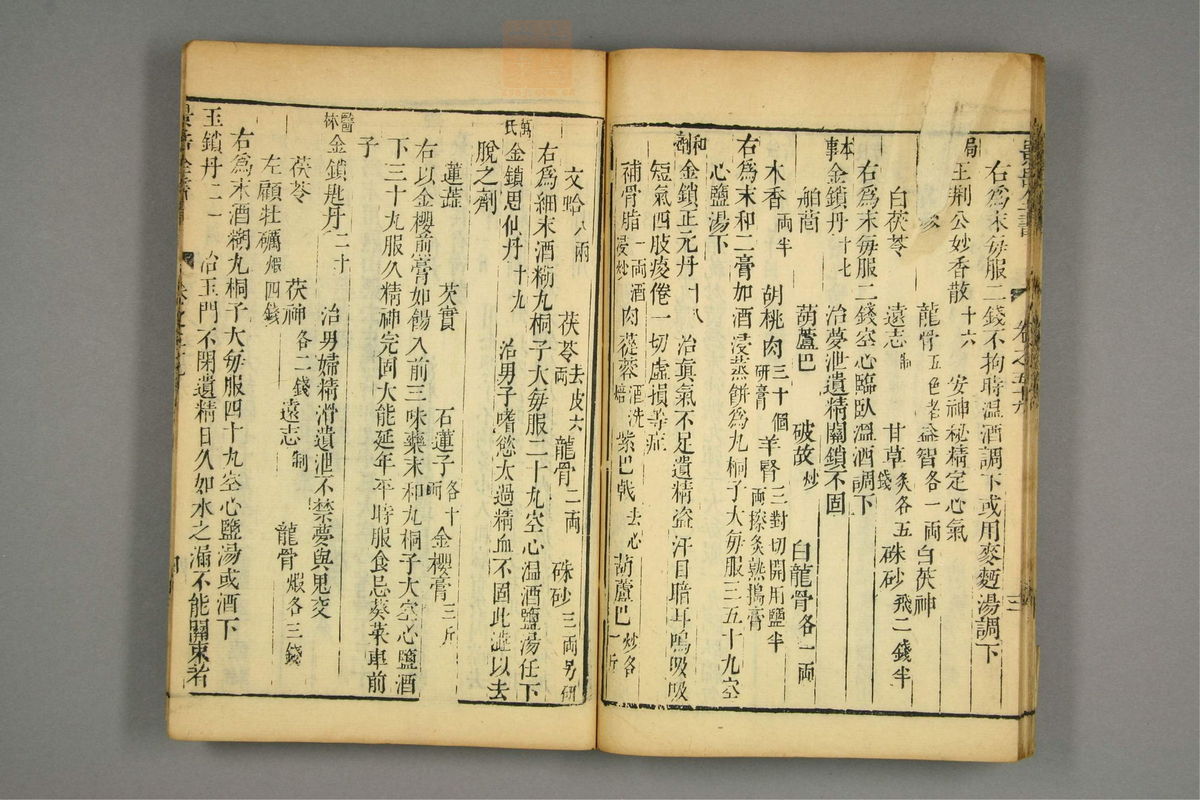 右爲末每服二錢不拘時溫酒調下或用麥麵湯調下
局
王荆公妙香散 十六 安神秘精定心氣
龍骨 五色者 益智 各一両 白茯神
白茯苓 遠志 制 甘草 灸各五錢 硃砂 飛二錢半
右爲末每服二錢空心臨臥溫酒調下
本事
金鎖丹 十七 治夢泄遺精關鎖不固
舶茴 葫蘆巴 破故 炒 白龍骨 各一両
木香 両半 胡桃肉 三十個研膏 羊腎 三對切開用鹽半両擦灸熟搗膏
右爲末和二膏加酒浸蒸餅爲丸桐子大每服三五十丸空
心鹽湯下
和劑
金鎖正元丹 十八 治眞氣不足遺精盗汗目暗耳鳴吸吸
短氣四肢痠倦一切虛損等症
補骨脂 一両酒浸炒 肉蓯蓉 酒洗焙 紫巴戟 去心 葫蘆巴 炒各一斤
文蛤 八両 茯苓 去皮六両 龍骨 二両 硃砂 三両另研
右爲細末酒糊丸桐子大每服二十丸空心温酒鹽湯任下
萬氏
金鎖思仙丹 十九 治男子嗜慾太過精血不固此澁以去
脫之劑
蓮蕋 芡實 石蓮子 各十両 金櫻膏 三斤
右以金櫻煎膏如餳入前三味藥末和丸桐子大空心鹽酒
下三十丸服久精神完固大能延年平時服食忌葵菜車前
子
醫林
金鎖匙丹 二十 治男婦精滑遺泄不禁夢與鬼交
茯苓 茯神 各二錢 遠志 制 龍骨 煆各三錢
左顧牡礪 煆四錢
右爲末酒糊丸桐子大每服四十丸空心鹽湯或酒下
玉鎖丹 二一 治玉門不閉遺精日久如水之漏不能關束者